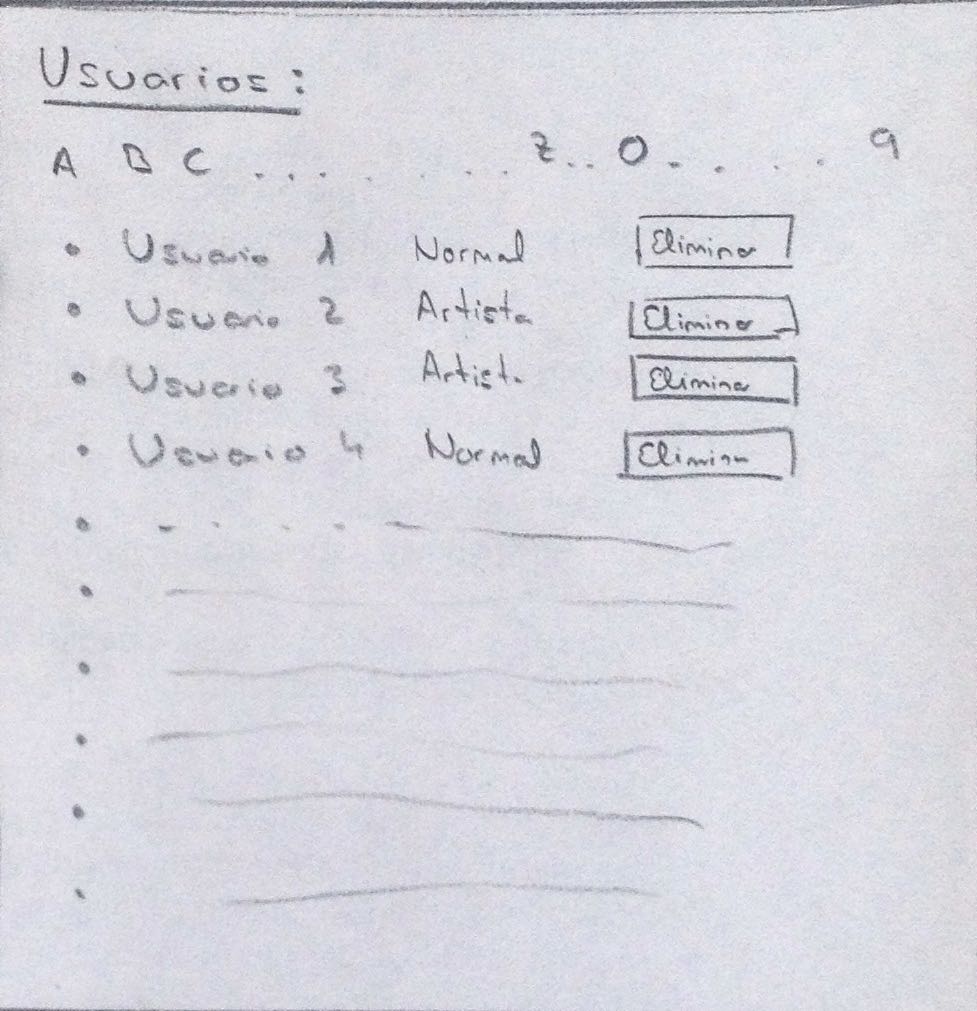 Usuarios:
A B C . . . . . . . Z . . 0 . . . . . 9
• Usuario 1 Normal Eliminar
• Usuario 2 Artista Eliminar
• Usuario 3 Artista Eliminar
• Usuario 4 Normal Eliminar